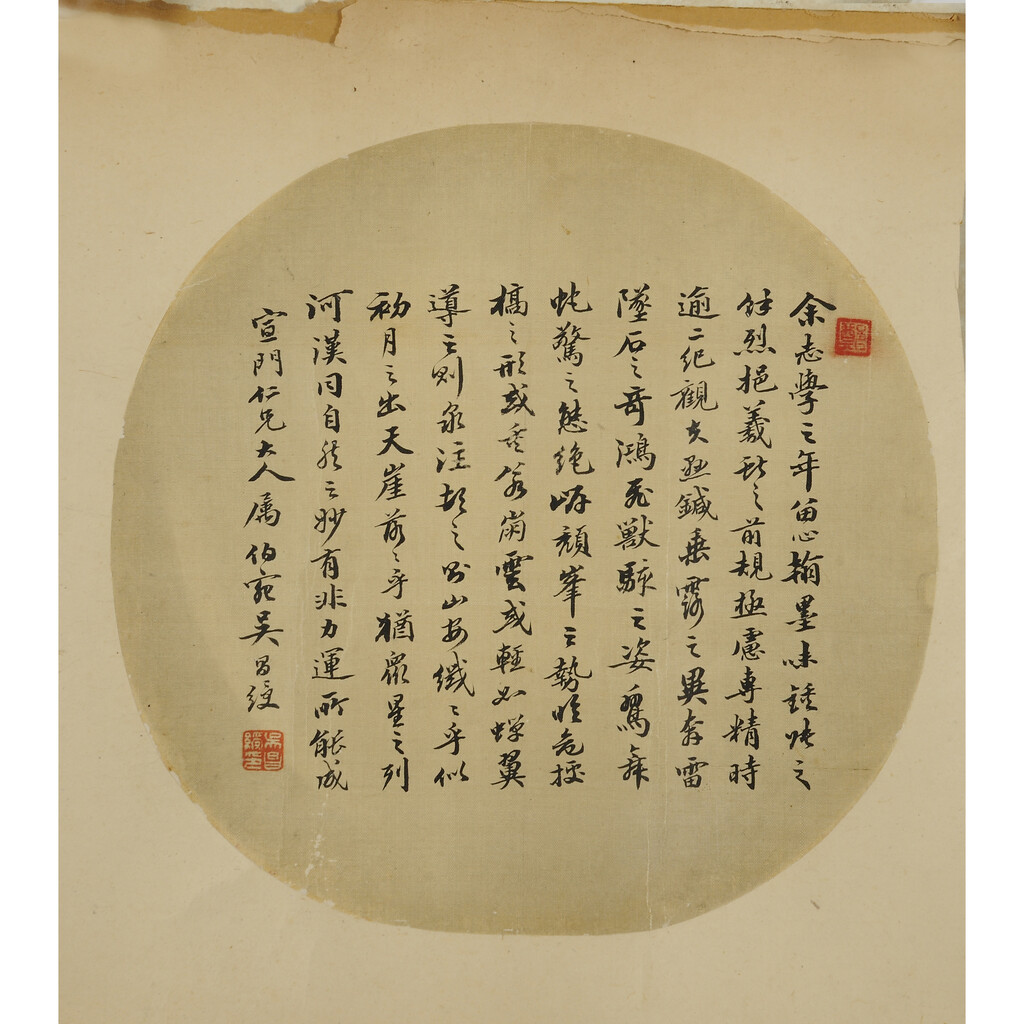 余志學之年留心翰墨味鍾張之
餘烈挹羲獻之前規極慮專精時
逾二紀觀夫懸鍼垂露之異奔雷
墜石之奇鴻飛獸駭之姿鸞舞
虵驚之態絶岸頹峯之勢臨危據
槁之形或重若崩雲或輕如蟬翼
導之則泉注頓之則山安纖〻乎似
初月之出天崖落〻乎猶衆星之列
河漢同自然之妙有非力運所能成
宣門仁兄大人属 伯宛吳昌綬
吳昌綬印